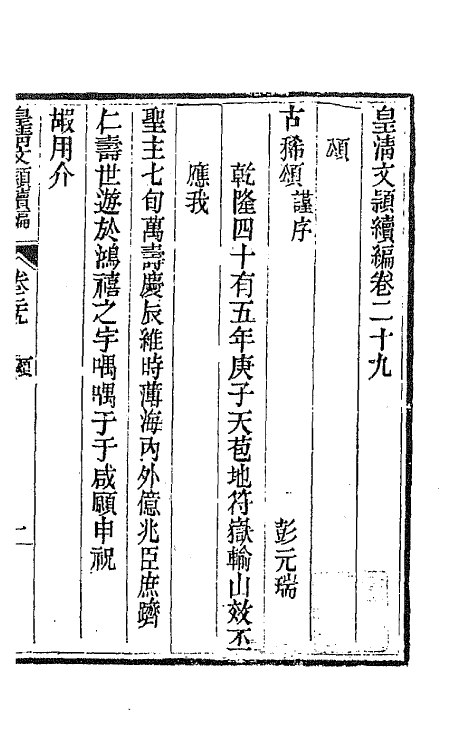 皇清文穎續編卷二十九
頌
古稀頌 謹序 彭元瑞
乾隆四十有五年庚子天苞地符嶽輸山效丕
應我
聖主七旬萬壽慶辰維時薄海內外億兆臣庶躋
仁壽世遊於鴻禧之宇喁喁于于咸願申祝
嘏用介
皇清文穎續編 卷二十九 頌 一